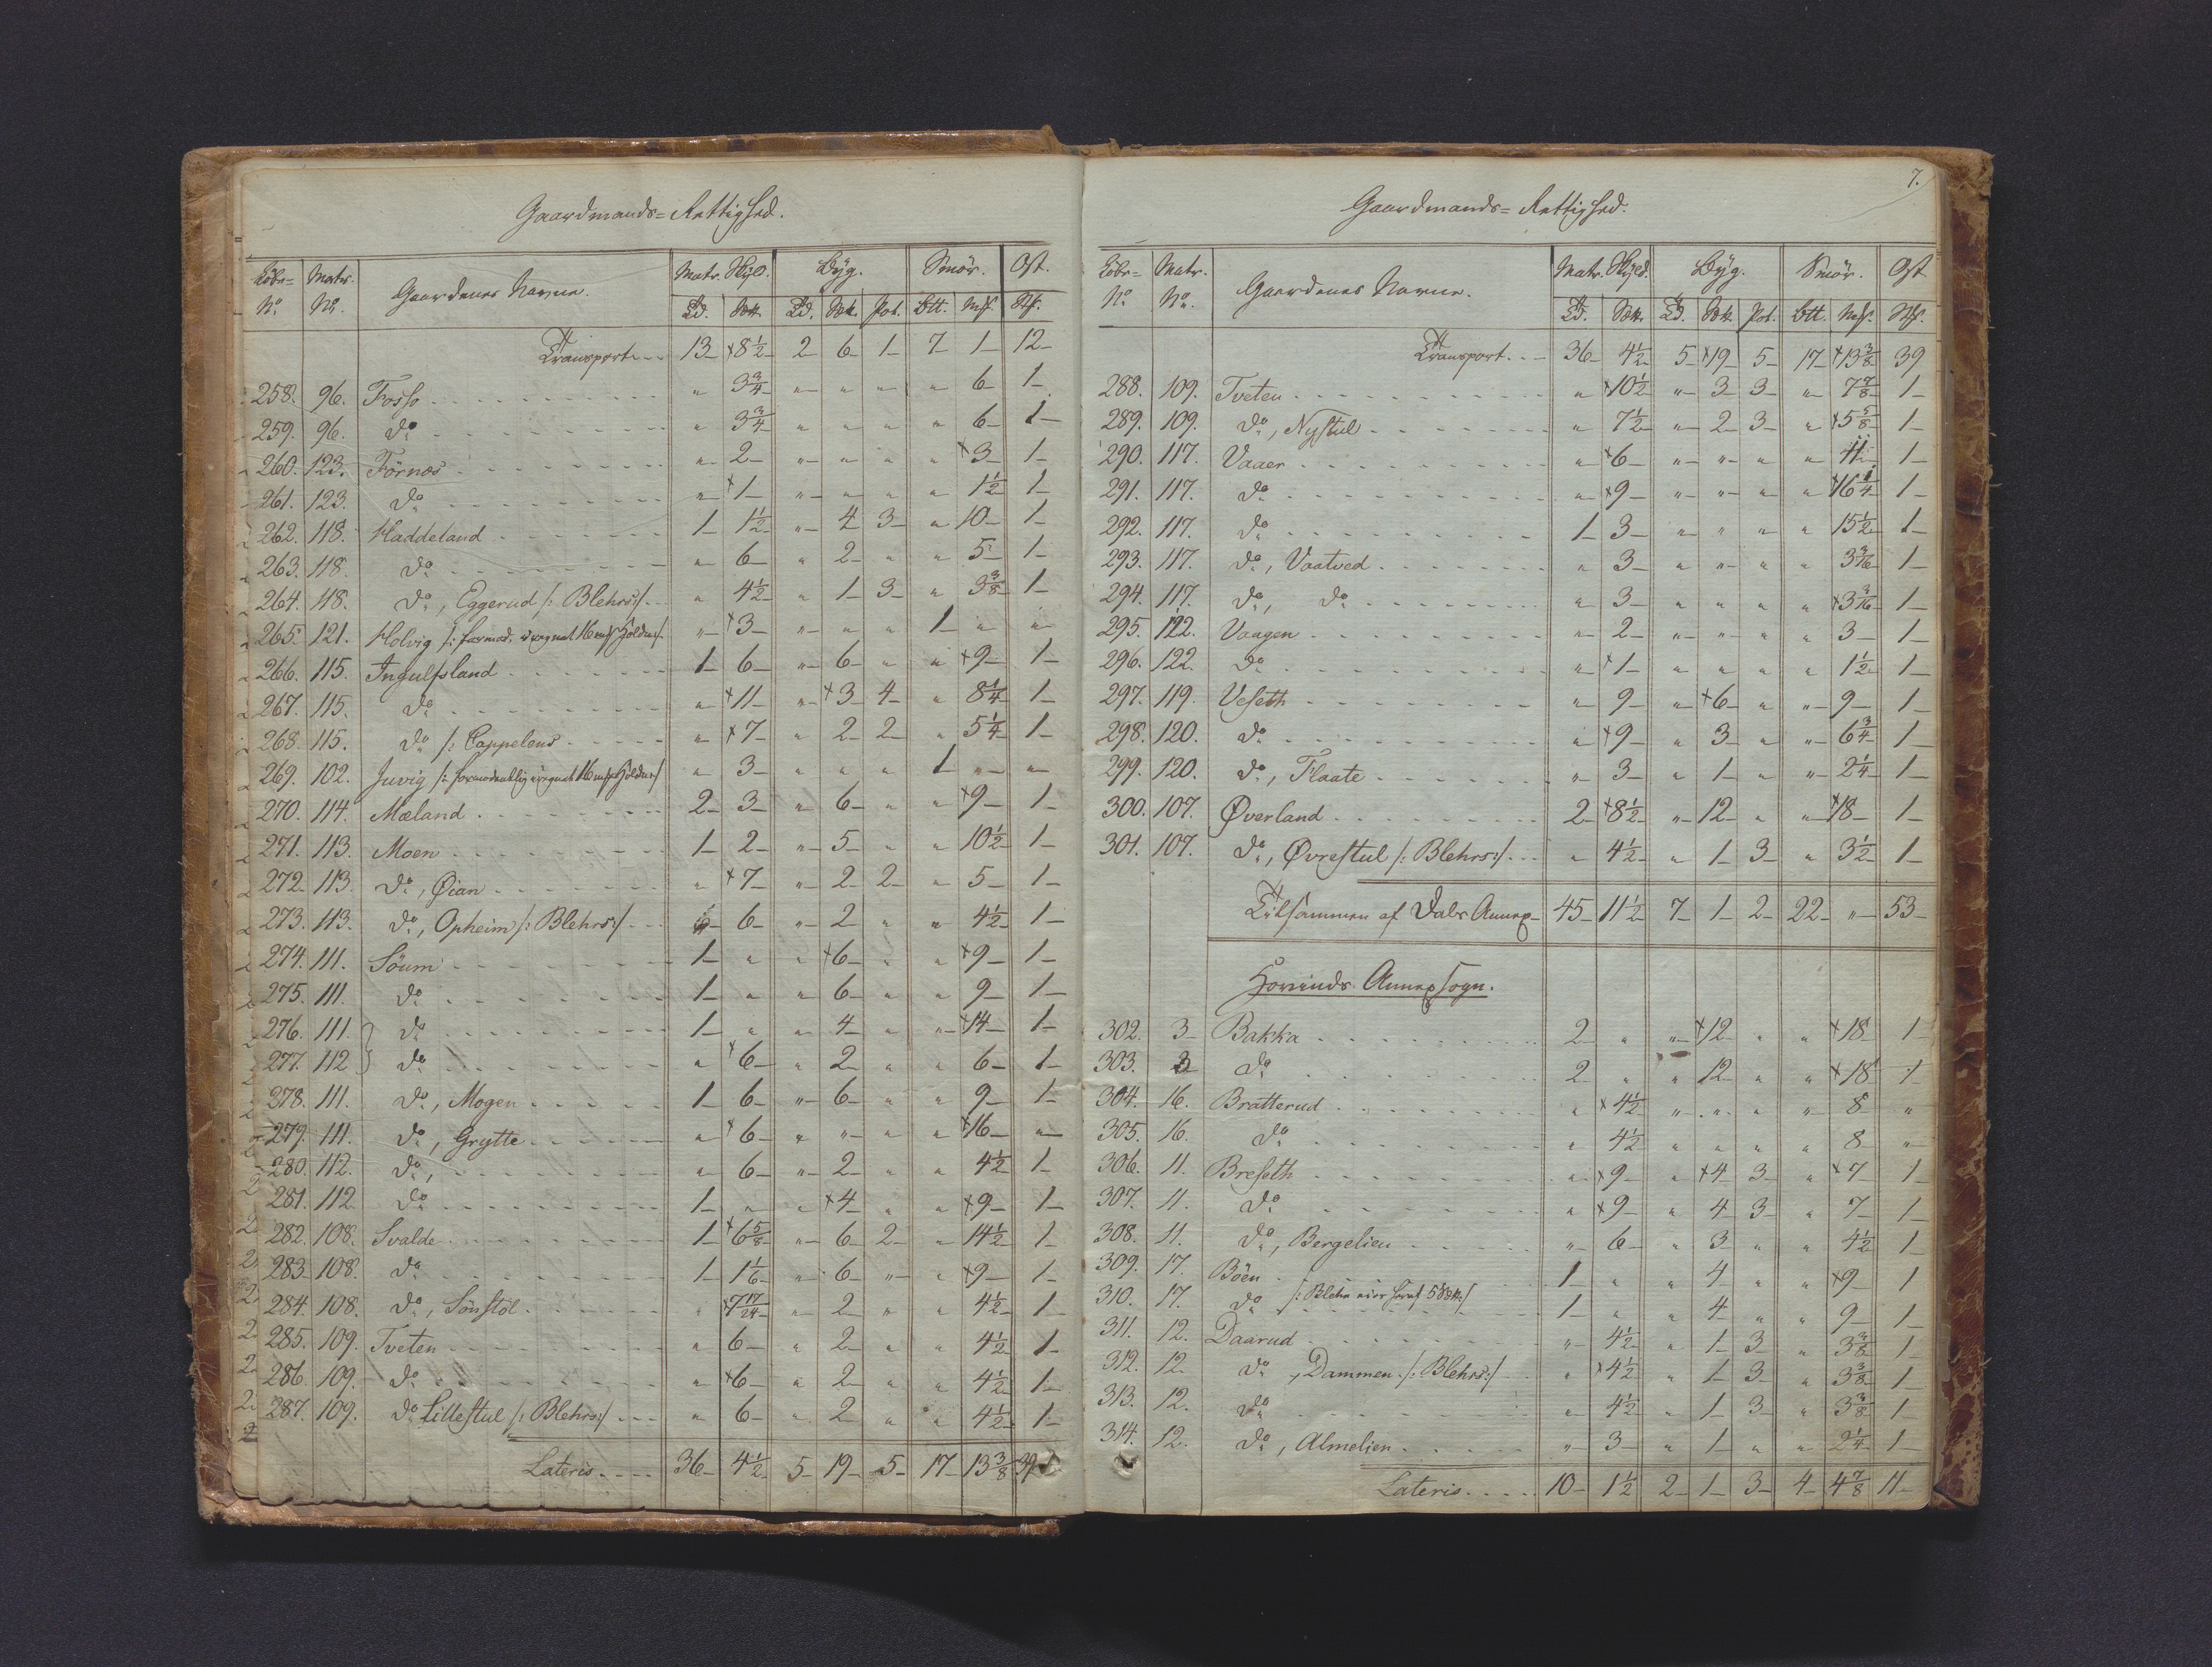 Gaardmands-Rettighed.
Löbe- Matr. Gaardenes Navne. Matr. Skyld. Byg. Smör. Ost.
No. No. Td. Sett. Td. Sett. Pot. Btt. Mk. Stk.
Transport 13 +8½ 2 6 1 7 1 12
258. 96. Fosso " 3¾ " " " " 6 1
259. 96. do " 3¾ " " " " 6 1
260. 123. Förnæs " 2 " " " " +3 1
261. 123. do " +1 " " " " 1½ 1
262. 118. Haddeland 1 1½ " 4 3 " 10 1
263. 118. do " 6 " 2 " " 5 1
264. 118. do, Eggerud /: Blehrs:/ " 4½ " 1 3 " 3⅜ 1
265. 121. Holvig /: formod. iregnet 16 mk Holden:/ " +3 " " " 1 " "
266. 115. Ingulfsland 1 6 " 6 " " +9 1
267. 115. do " +11 " +3 4 " 8¼ 1
268. 115. do /: Cappelens " +7 " 2 2 " 5¼ 1
269. 102. Juvig /: formodentlig iregnet 16 mk Holden:/ " 3 " " " 1 " "
270. 114. Mæland 2 3 " 6 " " +9 1
271. 113. Moen 1 2 " 5 " " 10½ 1
272. 113. do, Øian " +7 " 2 2 " 5 1
273. 113. do, Opheim /: Blehrs:/ " 6 " 2 " " 4½ 1
274. 111. Söum 1 " " +6 " " +9 1
275. 111. do 1 " " 6 " " 9 1
276. 111. } do 1 " " 4 " " +14 1
277. 112 } do " +6 " 2 " " 6 1
278. 111. do, Mogen 1 6 " 6 " " 9 1
279. 111. do, Grytte " +6 " " " " +16 "
280. 112. do, " 6 " 2 " " 4½ 1
281. 112 do 1 " " +4 " " +9 1
282. 108. Svalde 1 +6⅝ " 6 2 " 14½ 1
283. 108. do 1 1⅙ " 6 " " +9 1
284. 108. do, Sönstöl " +7 17/24 " 2 " " 4½ 1
285. 109. Tveten " 6 " 2 " " 4½ 1
286. 109. do " +6 " 2 " " 4½ 1
287. 109. do Lillestul /: Blehrs:/ " 6 " 2 " " 4½ 1
Lateris 36 4½ 5 19 5 17 13⅜ 39
7.
Gaardmands-Rettighed.
Löbe- Matr. Gaardenes Navne. Matr. Skyld. Byg. Smör. Ost
No. No. Td. Sett. Td. Sett. Pot. Btt. Mk. Stk.
Transport 36 4½ 5 +19 5 17 +13⅜ 39
288. 109. Tveten " +10½ " 3 3 " 7⅞ 1
289. 109. do, Nystul " 7½ " 2 3 " +5⅝ 1
290. 117. Vaaer " +6 " " " " 11 1
291. 117. do " +9 " " " " +16¼ 1
292. 117. do 1 3 " " " " 15½ 1
293. 117. do, Vaatved " 3 " " " " 3 3/16 1
294. 117. do, do " 3 " " " " +3 3/16 1
295. 122. Vaagen " 2 " " " " 3 1
296. 122. do " +1 " " " " 1½ 1
297. 119. Veseth " 9 " +6 " " 9 1
298. 120. do " +9 " 3 " " 6¾ 1
299. 120. do, Flaate " 3 " 1 " " 2¼ 1
300. 107. Øverland 2 +8½ " 12 " " +18 1
301. 107. do, Øvrestul /: Blehrs:/ " 4½ " 1 3 " 3½ 1
Tilsammen af Dals Annex 45 11½ 7 1 2 22 " 53
Hovinds Annexsogn.
302. 3 Bakka 2 " " +12 " " +18 1
303. 3 do 2 " " 12 " " +18 1
304. 16. Bratterud " +4½ " " " " 8 "
305. 16. do " 4½ " " " " 8 "
306. 11. Breseth " +9 " +4 3 " +7 1
307. 11. do " +9 " 4 3 " 7 1
308. 11. do, Bergelien " 6 " 3 " " 4½ 1
309. 17. Böen 1 " " 4 " " +9 1
310. 17. do /: Blehr eier heraf 5 Sett:/ 1 " " 4 " " 9 1
311. 12. Daarud " 4½ " 1 3 " 3⅜ 1
312. 12. do, Dammen /: Blehrs:/ " +4½ " 1 3 " 3⅜ 1
313. 12. do " 4½ " 1 3 " 3⅜ 1
314. 12. do, Almelien " 3 " 1 " " 2¼ 1
Lateris 10 1½ 2 1 3 4 4⅞ 11